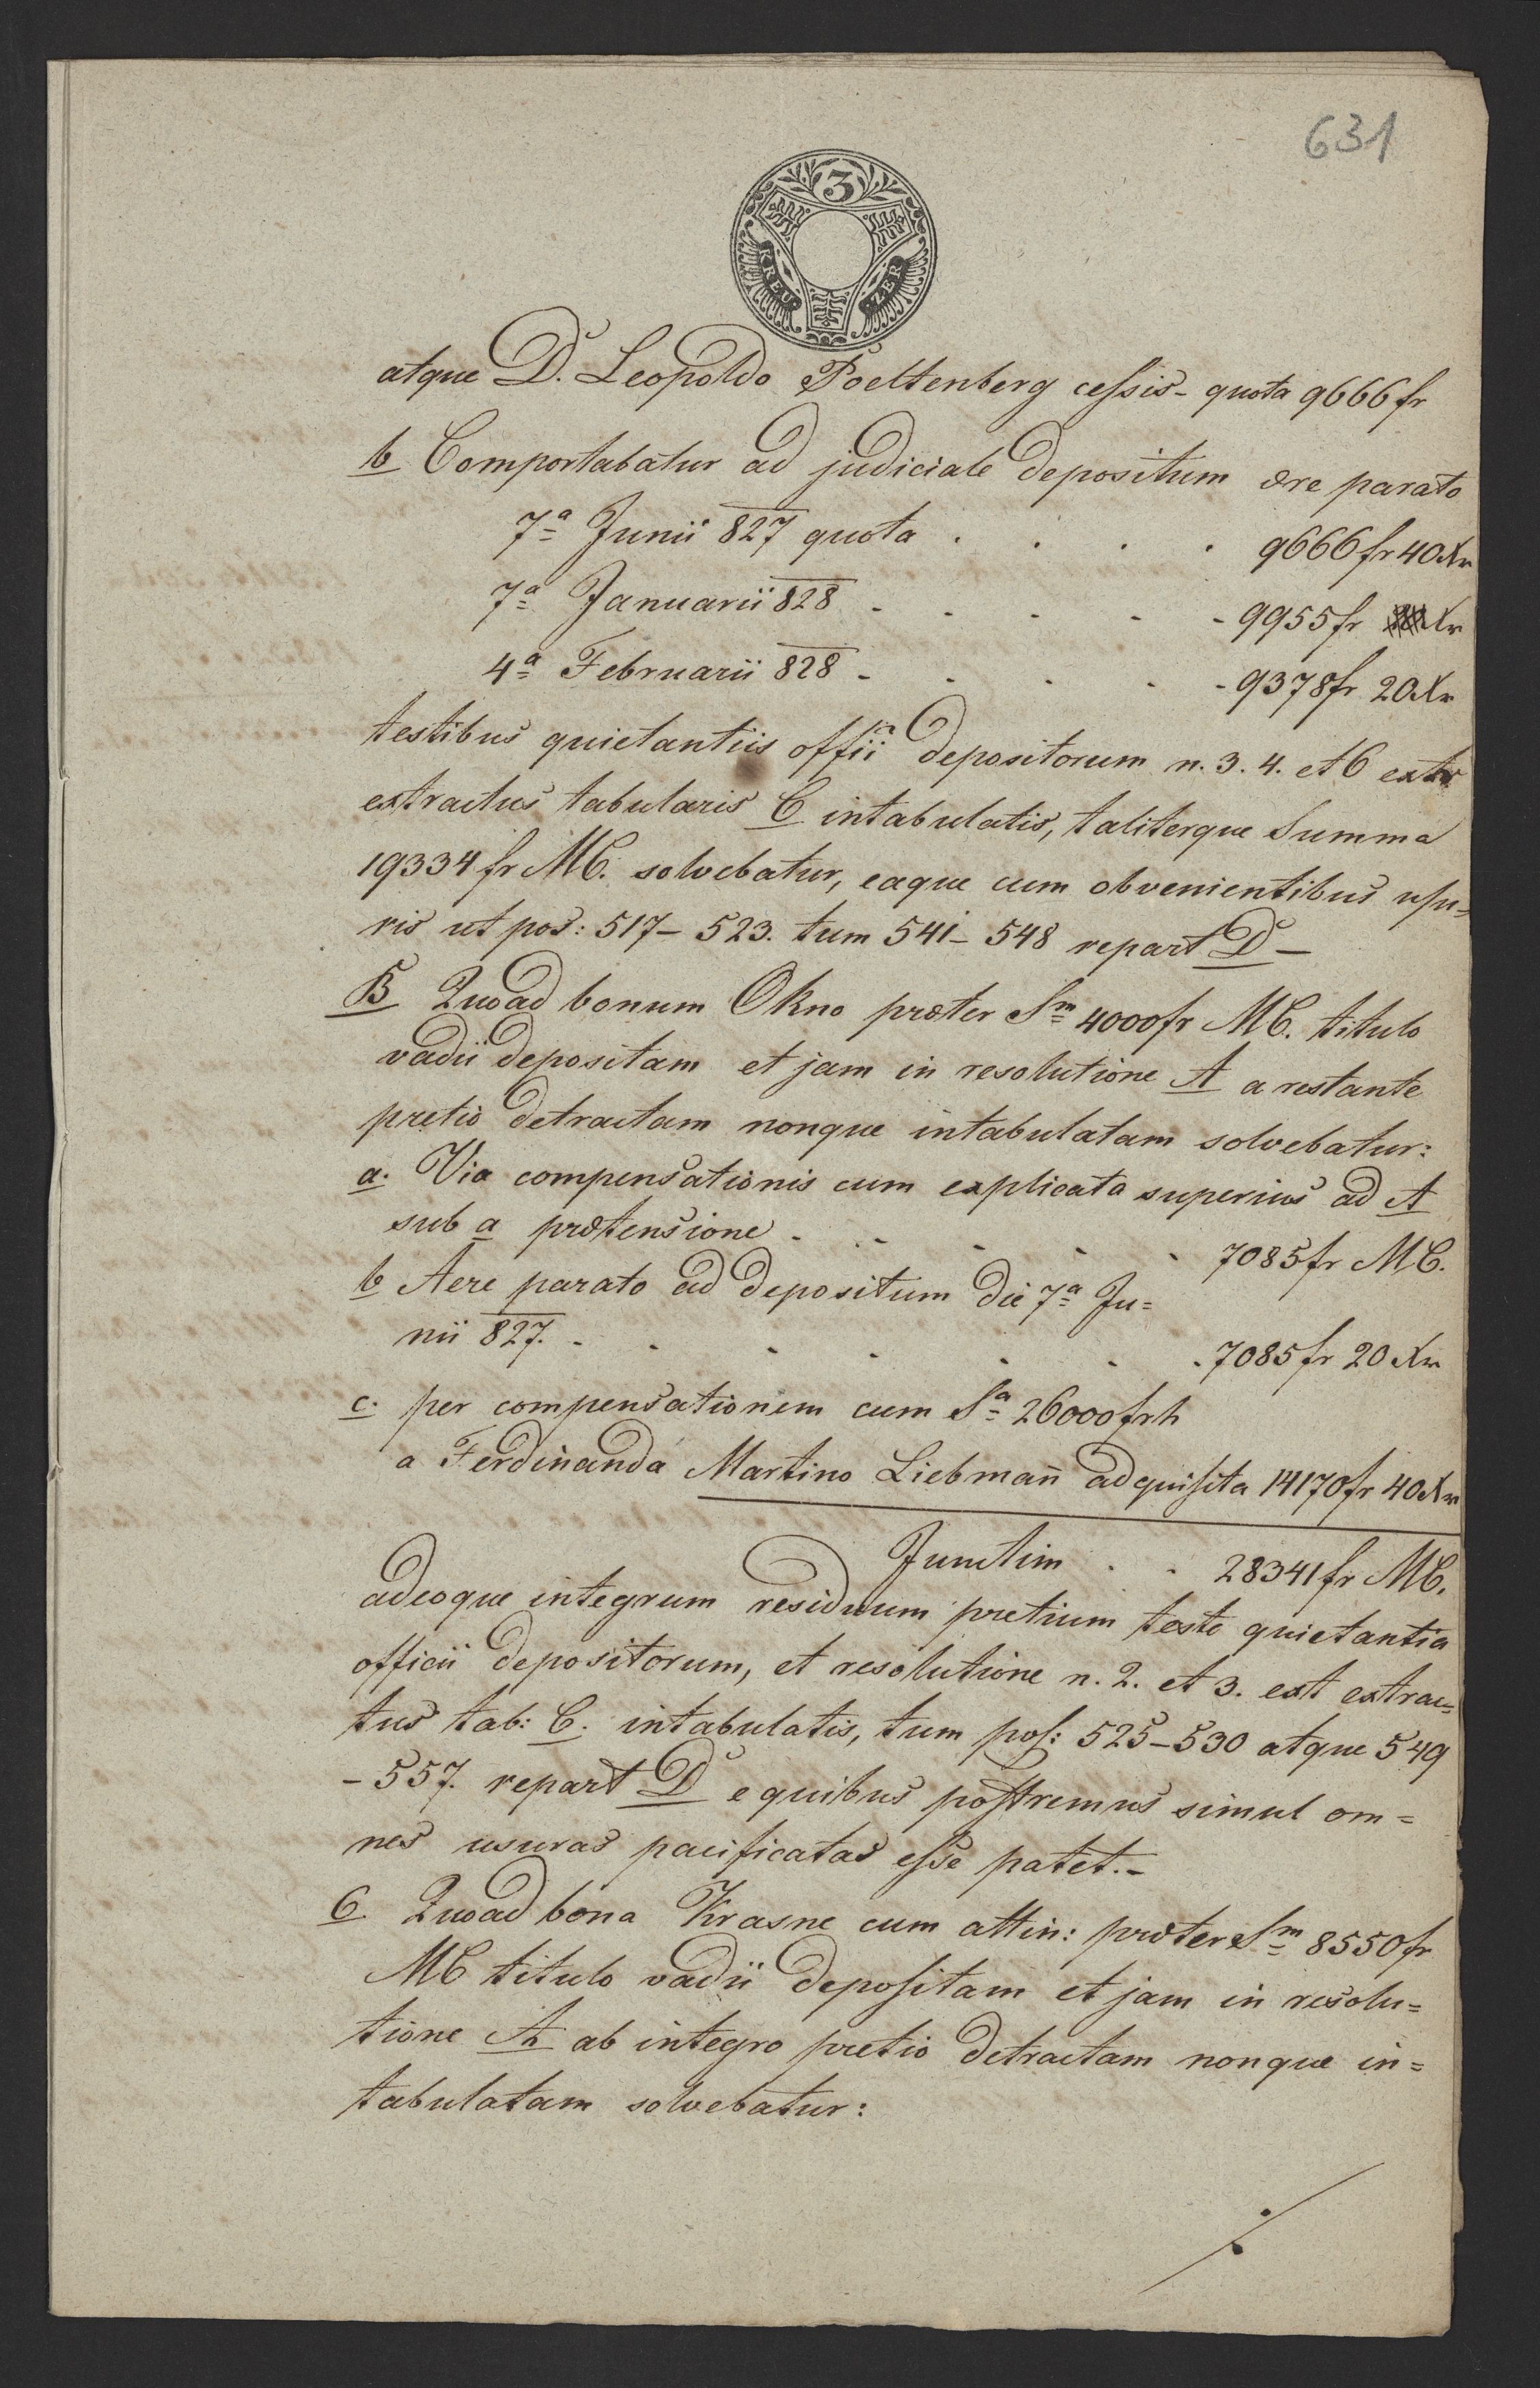 631
3
KREU ZER
atque D. Leopoldo Poeltenberg cessis - quota 9666 fr
b Comportabatur ad judiciale depositum ære parato
7ª Junii 827 quota . . . . 9666 fr 40 Xr
7ª Januarii 828 - - - - - 9955 fr Xr
4ª Februarii 828 - - - - - 9378 fr 20 Xr
testibus quietantiis offii depositorum n. 3. 4. et 6 extr
extractus tabularis C intabulatis, taliterque Summa
19334 fr MC. solvebatur, eaque cum obvenientibus usu=
ris ut pos: 517 - 523. tum 541 - 548 repart D -
B Quoad bonum Okno præter Sm 4000 fr MC. titulo
vadii depositam et jam in resolutione A a restante
pretio detractam nonque intabulatam solvebatur:
a. Via compensationis cum explicata superius ad A
sub a prætensione - - - - - 7085 fr MC.
b Aere parato ad depositum die 7ª Ju=
nii 827. - - - - - - 7085 fr 20 Xr
c. per compensationem cum Sª 26000 frh
a Ferdinanda Martino Liebmañ adquisita 14170 fr 40 Xr
Junctim . . 28341 fr MC.
adeoque integrum residuum pretium teste quietantia
officii depositorum, et resolutione n. 2. et 3. ext extrac=
tus tab: C. intabulatis, tum pos: 525 - 530 atque 549
- 557. repart D e quibus postremus simul om=
nes usuras pacificatas esse patet. -
C Quoad bona Krasne cum attin: præter Sm 8550 fr
MC titulo vadii depositam et jam in resolu=
tione A ab integro pretio detractam nonque in=
tabulatam solvebatur:
./.